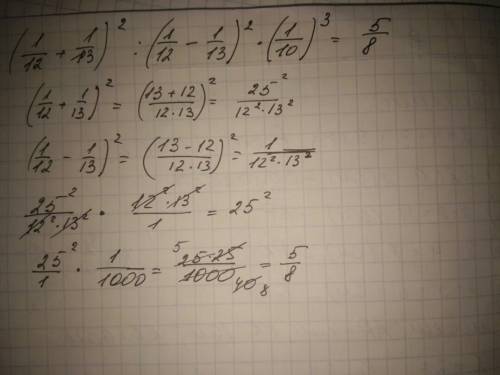 (1/12 + 1/13)² : (1/12 − 1/13)² · (1/10)³ = 5/8
(1/12 + 1/13)² = ((13 + 12)/(12 · 13))² = 25²/(12² · 13²)
(1/12 − 1/13)² = ((13 − 12)/(12 · 13))² = 1/(12² · 13²)
25²/(12² · 13²) · (12² · 13²)/1 = 25²
25²/1 · 1/1000 = 5 25 · 25/1000 40 8 = 5/8